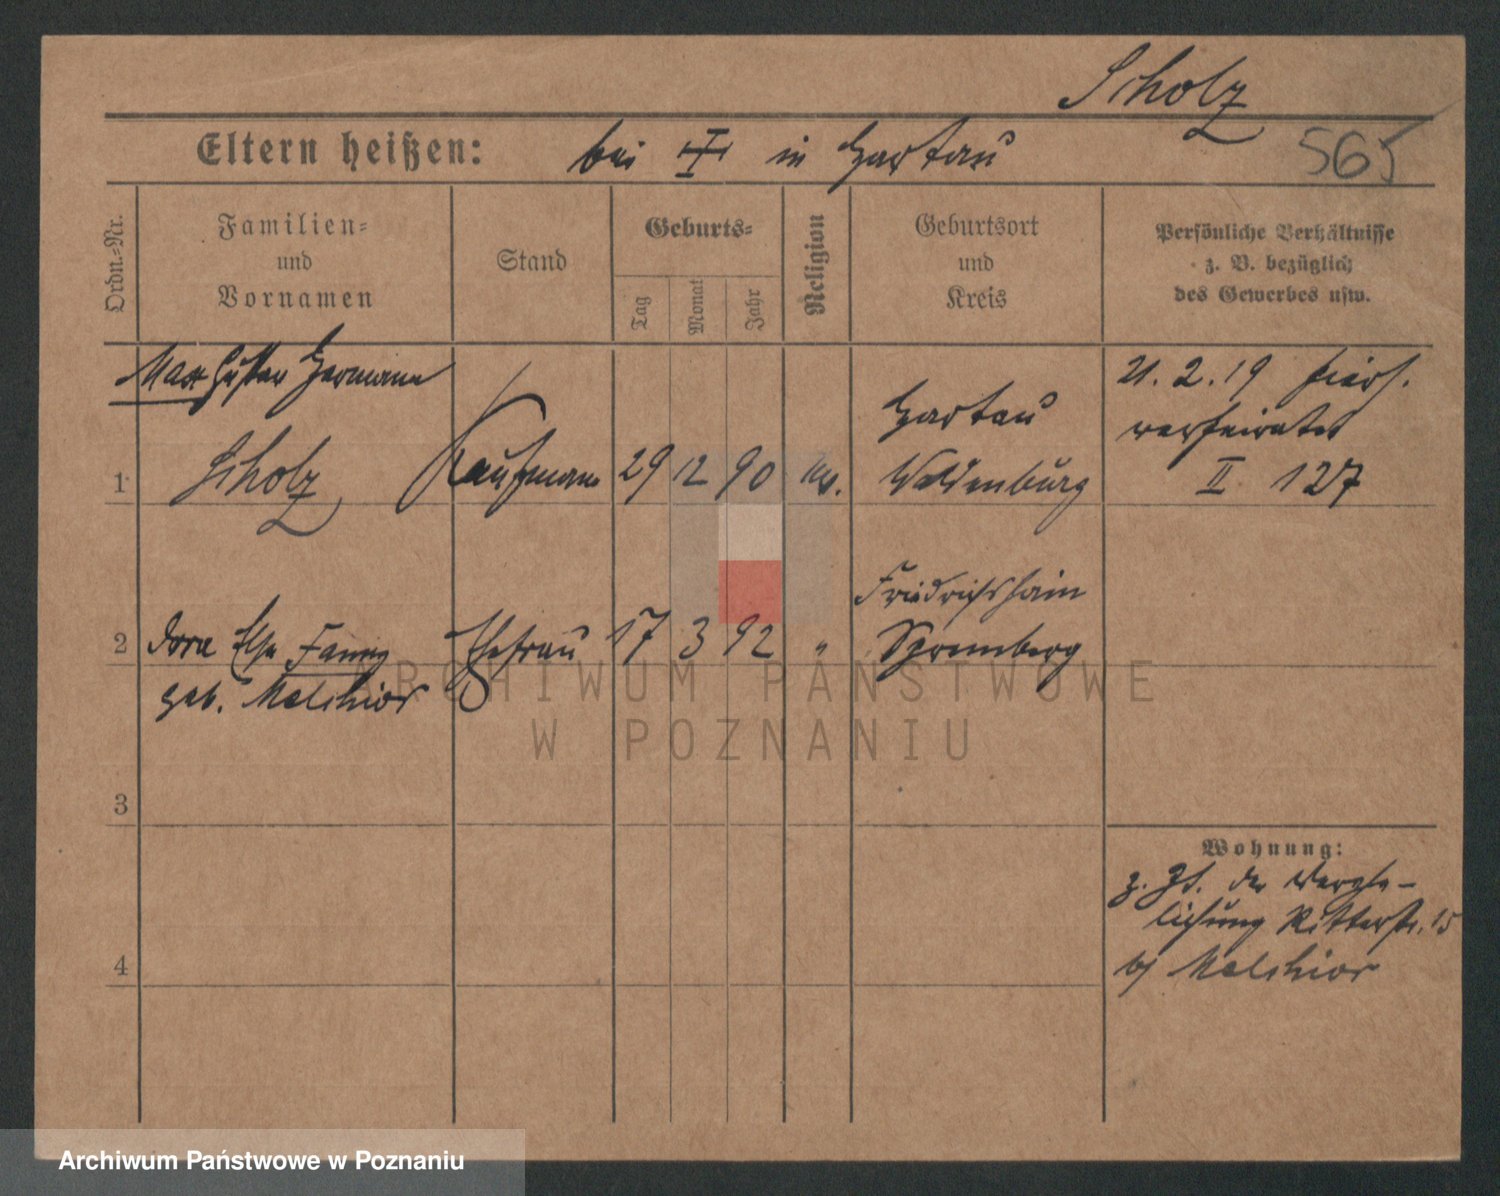 Scholz
565
Eltern heißen: bei I in Hartau
Ordn.-Nr.
Familien-
und
Vornamen
Stand
Geburts-
Tag
Monat
Jahr
Religion
Geburtsort
und
Kreis
Persönliche Verhältnisse
z. B. bezüglich
des Gewerbes usw.
Max Gustav Hermann
1 Scholz Kaufmann 29 12 90 ev. Hartau
Waldenburg
21. 2. 19 hier
verheiratet
II 127
2 Dora Else Fanny Ehefrau 17 3 92 " Friedrichshain
Spremberg
geb. Melchior
3
4
Wohnung:
z. Zt. der
Ritterstr. 15
b/ Melchior
ARCHIWUM PAŃSTWOWE
W POZNANIU
Archiwum Państwowe w Poznaniu